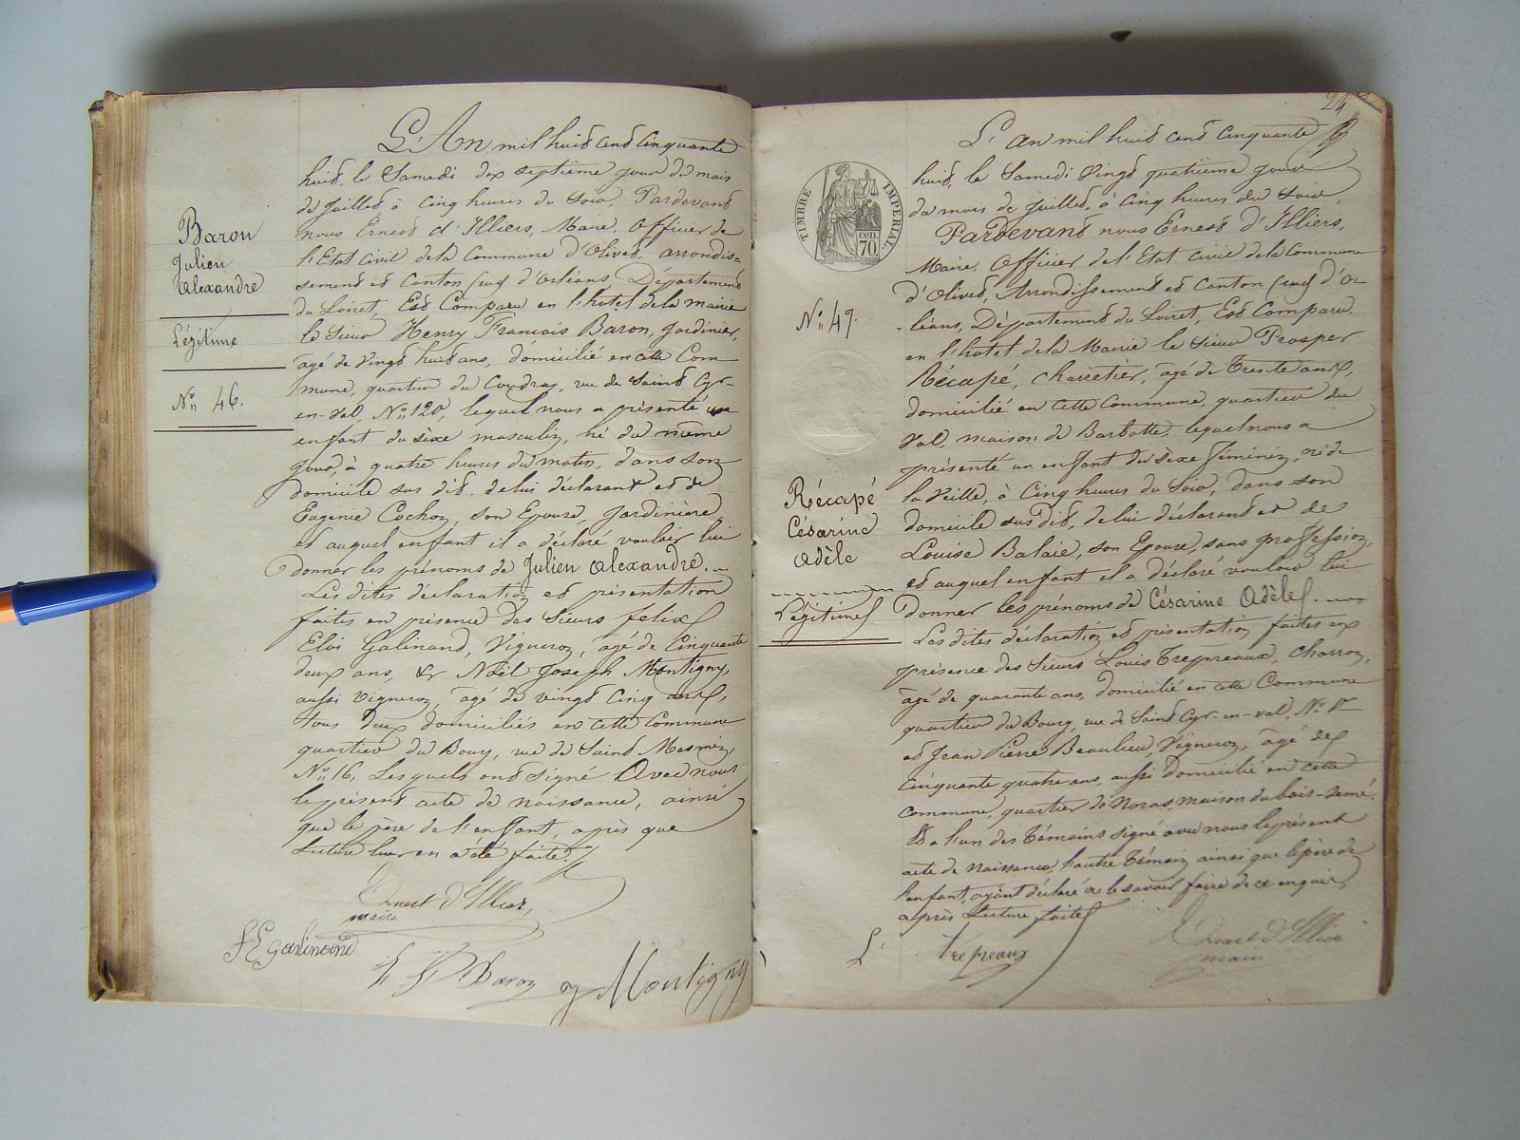 Baron
Julien
Alexandre
Légitime
N° 46.
L'An mil huit cent cinquante
huit, le Samedi dix septième jour du mois
de Juillet à cinq heures du Soir, Pardevant
nous Ernest d'Illiers, Maire, Officier de
l'Etat Civil de la Commune d'Olivet, arrondis=
sement et Canton sud d'Orléans, Département
du Loiret, Est Comparu en l'hôtel de la mairie
le Sieur Henry François Baron, Jardinier,
âgé de Vingt huit ans, domicilié en cette Com
mune, quartier du Coudray, rue de Saint Cyr-
en-Val, N° 120, lequel nous a présenté un
enfant du sèxe masculin, né du même
jour, à quatre heures du matin, dans son
domicile sus dit, de lui déclarant et de
Eugénie Cochon, son Epouse, Jardinière,
et auquel enfant il a déclaré vouloir lui
donner les prénoms de Julien Alexandre.
Les dites déclaration et présentation
faites en présence des Sieurs felix
Eloi Galinand, Vigneron, âgé de Cinquante
deux ans, & Noël Joseph Montigny,
aussi vigneron, âgé de vingt cinq ans,
tous deux domiciliés en cette Commune
quartier du Bourg, rue de Saint Mesmin,
N° 16, Lesquels ont signé Avec nous
le présent acte de naissance, ainsi
que le père de l'enfant, après que
Lecture leur en a été faite.
Ernest d'Illiers,
maire
f E galinand
h f Baron
Montigny
24
TIMBRE IMPERIAL
70
N° 47.
Récapé
Césarine
Adèle
Légitime
L'an mil huit cent cinquante
huit, le Samedi Vingt quatrième jour
du mois de Juillet, à Cinq heures du Soir,
Pardevant nous Ernest d'Illiers,
Maire, Officier de l'Etat civil de la Commune
d'Olivet, Arrondissement et Canton sud d'Or
léans, Département du Loiret, Est Comparu
en l'hotel de la Mairie le Sieur Prosper
Récapé, charretier, âgé de Trente ans,
domicilié en cette Commune, quartier du
Val, maison de Barbotte, lequel nous a
présenté un enfant du sexe féminin, né de
la Veille, à Cinq heures du Soir, dans son
domicile sus dit, de lui déclarant et de
Louise Balaie, son Epouse, sans profession,
et auquel enfant il a déclaré vouloir lui
donner les prénoms de Césarine Adèle.
Les dites déclaration et présentation faites en
présence des Sieurs Louis Trepreaux, Charron,
âgé de quarante ans, domicilié en cette Commune
quartier du Bourg, rue de Saint Cyr-en-val, N° 1er
et Jean Pierre Beaulieu, Vigneron, âgé de
Cinquante quatre ans, aussi domicilié en cette
commune, quartier de Noras, maison du bois-semé,
Et a l'un des Témoins signé avec nous le présent
acte de Naissance, l'autre Témoin ainsi que le père de
l'enfant, ayant déclaré ne le savoir faire de ce enquis,
après Lecture faite.
L. trepreaux
Ernest d'Illiers
maire